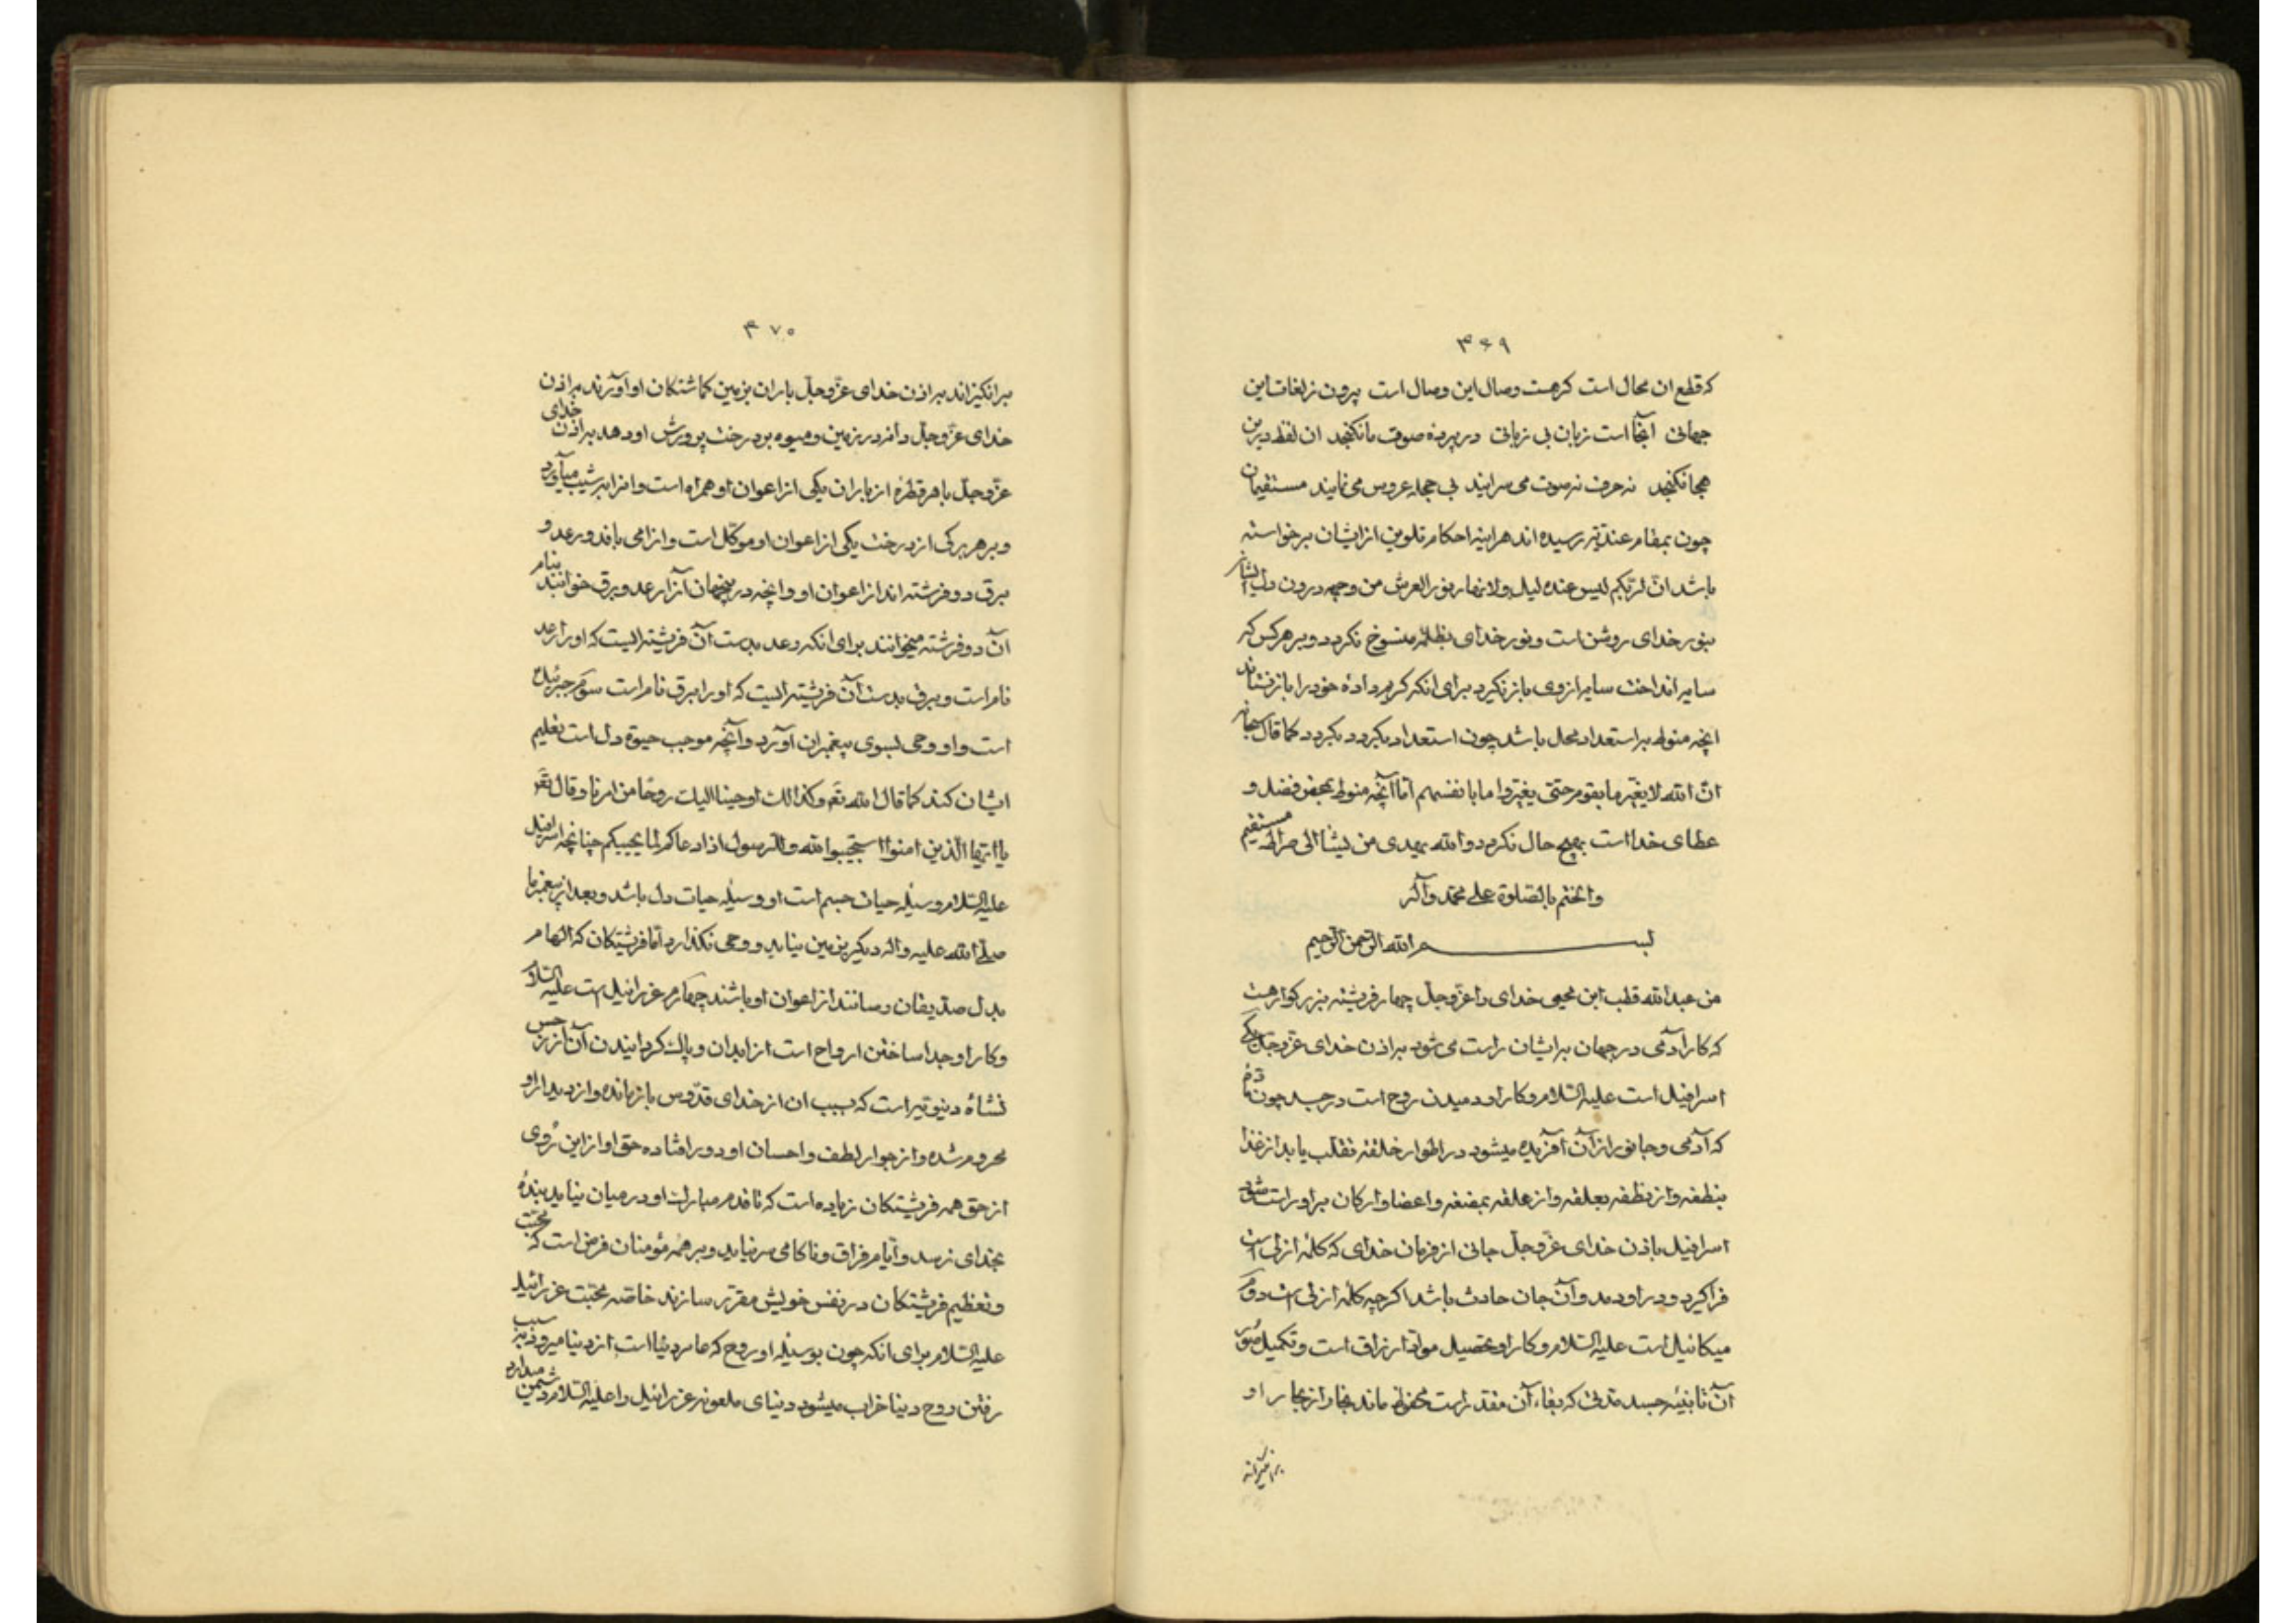 ۳۶۹
که قطع ان محال است کرهست وصال این وصال است پرون زلغات این
جهانی آنجا است زبان بی زبانی در پرده صوت مانکنجد ان لفظ درین
هجا نکنجد نه حرف نه صوت می سرایند بی حجله عروس می نمایند مستقیمان
چون بمقام عندیّة رسیده اند هراینه احکام تلوین از ایشان برخواسته
باشد انّ لربّکم لیس عنده لیل ولا نهار نور العرش من وجهه درون دل ایشان
بنور خدای روشن است و نور خدای بظلمة منسوخ نکردد و بر هر کس که
سایه انداخت سایه از وی باز نکیرد برای انکه کریم داده خود را باز نستاند
انچه منوط بر استعداد محل باشد چون استعداد بکردد بکردد کما قال سبحانه
انّ الله لا یغیّر ما بقوم حتّی یغیّروا ما بانفسهم امّا آنچه منوط بمحض فضل و
عطای خدا است بهیچ حال نکردد والله یهدی من یشآ الی صراط مستقیم
واختم بالصّلوة علی محمّد وآله
بسم الله الرّحمن الرّحیم
من عبدالله قطب ابن محیی خدای را عزّوجلّ چهار فریشته بزرکوار هست
که کار آدمی در جهان بر ایشان راست می شود بر اذن خدای عزّوجلّ یکی
اسرافیل است علیه السّلام و کار او دمیدن روح است در جسد چون مادّه
که آدمی و جانور از آن آفریده میشود در اطوار خلقة تقلّب یابد از غذا
بنطفه و از نطفه بعلقه و از علقه بمضغه و اعضا و ارکان بر او راست شود
اسرافیل باذن خدای عزّوجلّ جانی از فرمان خدای که کلمهٔ ازلی است
فرا کیرد و در او دمد و آن جان حادث باشد اکرچه کلمهٔ ازلی است دوم
میکائیل است علیه السّلام و کار او تحصیل موادّ ارزاق است و تکمیل صور
آن تا بنیهٔ جسد مدتی که بقاء آن مقدر است محفوظ ماند بخار از بحار او
برانکیزاند
۳۷۰
برانکیزاند بر اذن خدای عزّوجلّ باران بزمین کماشتکان او آورند بر اذن
خدای عزّوجلّ دانه در زمین و میوه بر درخت پرورش او دهد بر اذن خدای
عزّوجلّ با هر قطرهٔ از باران یکی از اعوان او همراه است و انرا بر نشیب میآورد
و بر هر برکی از درخت یکی از اعوان او موکّل است و انرا می بافد و رعد و
برق دو فرشته اند از اعوان او و انچه در جهان آنرا رعد و برق خوانند بنام
آن دو فرشته میخوانند برای انکه رعد بدست آن فریشته ایست که او را رعد
نام است و برق بدست آن فریشته ایست که او را برق نام است سوّم جبرئیل
است و او وحی بسوی پیغمبران آورد و آنچه موجب حیوة دل است تعلیم
ایشان کند کما قال الله تعٓ وکذالك اوحینا الیك روحًا من امرنا وقال تعٓ
یا ایّها الّذین امنوا استجیبوا لله وللرسول اذا دعاکم لما یحییکم چنانچه اسرافیل
علیه السّلام وسیلهٔ حیات جسم است او وسیلهٔ حیات دل باشد و بعد از پیغمبر ما
صلّی الله علیه واله دیکر بزمین نیاید و وحی نکذارد امّا فریشتکان که الهام
بدل صدّیقان رسانند از اعوان او باشند چهارم عزرائیل است علیه السّلام
و کار او جدا ساختن ارواح است از ابدان و پاك کردانیدن آن از رجس
نشاهٔ دنیویّه است که بسبب ان از خدای قدّوس باز مانده و از دیدار او
محروم شده و از جوار لطف و احسان او دور افتاده حق او از این روی
از حق همه فریشتکان زیاده است که تا قدم مبارك او در میان نیاید بندهٔ
بخدای نرسد و ایّام فراق و ناکامی سر نیاید و بر همهٔ مؤمنان فرض است که محبّت
و تعظیم فریشتکان در نفس خویش مقرّر سازند خاصّه محبّت عزرائیل
علیه السّلام برای انکه چون بوسیلهٔ او روح که عامر دنیا است از دنیا میرود بسبب
رفتن روح دنیا خراب میشود دنیای ملعونه عزرائیل را علیه السّلام دشمن میدارد